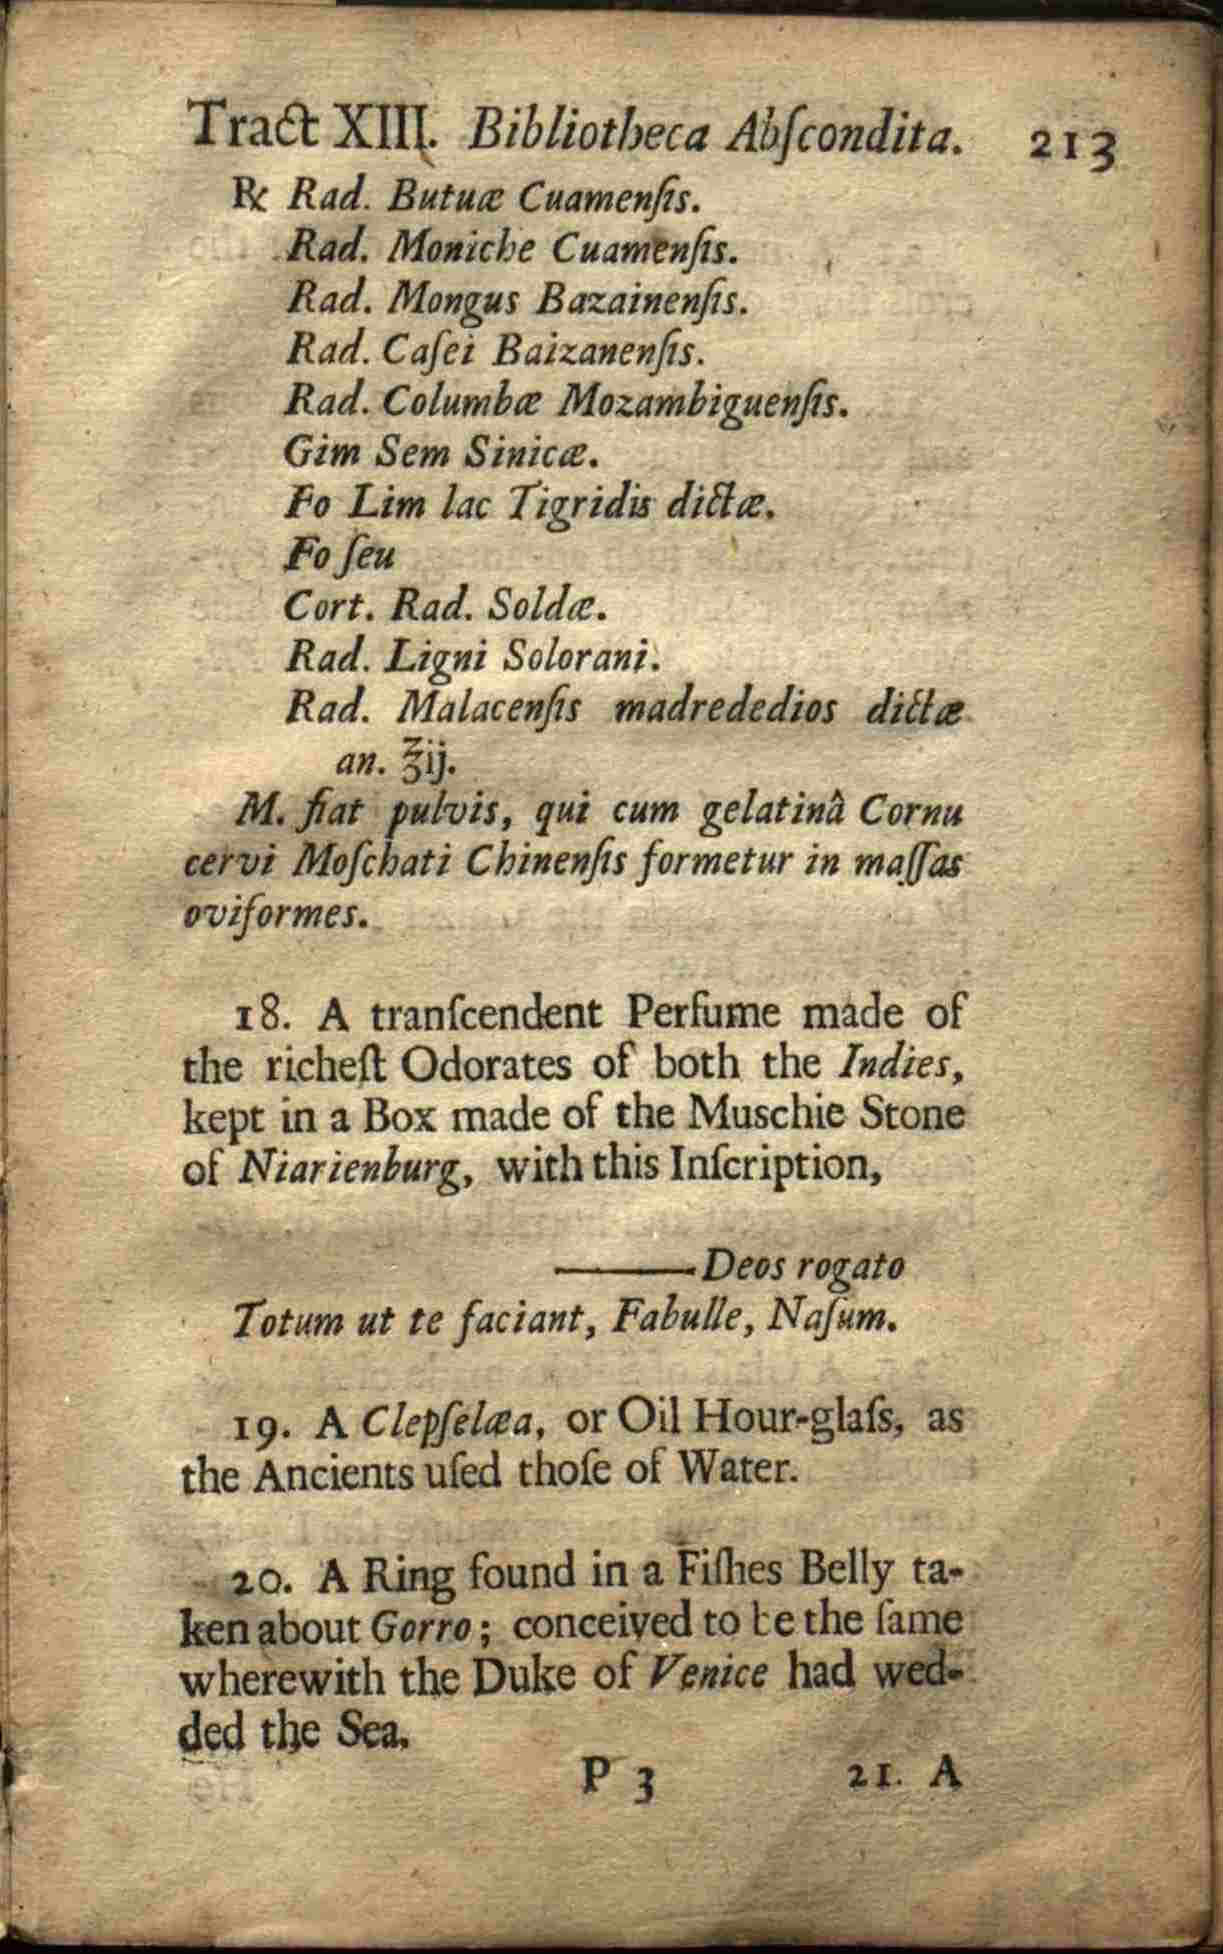 Tract XIII. Bibliotheca Abſcondita. 213
℞ Rad. Butuæ Cuamenſis.
Rad. Moniche Cuamenſis.
Rad. Mongus Bazainenſis.
Rad. Caſei Baizanenſis.
Rad. Columbæ Mozambiguenſis.
Gim Sem Sinicæ.
Fo Lim lac Tigridis dictæ.
Fo ſeu
Cort. Rad. Soldæ.
Rad. Ligni Solorani.
Rad. Malacenſis madrededios dictæ
an. ℥ij.
M. fiat pulvis, qui cum gelatinâ Cornu
cervi Moſchati Chinenſis formetur in maſſas
oviformes.
18. A tranſcendent Perfume made of
the richeſt Odorates of both the Indies,
kept in a Box made of the Muschie Stone
of Niarienburg, with this Inſcription,
———Deos rogato
Totum ut te faciant, Fabulle, Naſum.
19. A Clepſelæa, or Oil Hour-glaſs, as
the Ancients uſed thoſe of Water.
20. A Ring found in a Fiſhes Belly ta-
ken about Gorro; conceived to be the ſame
wherewith the Duke of Venice had wed-
ded the Sea.
P 3 21. A